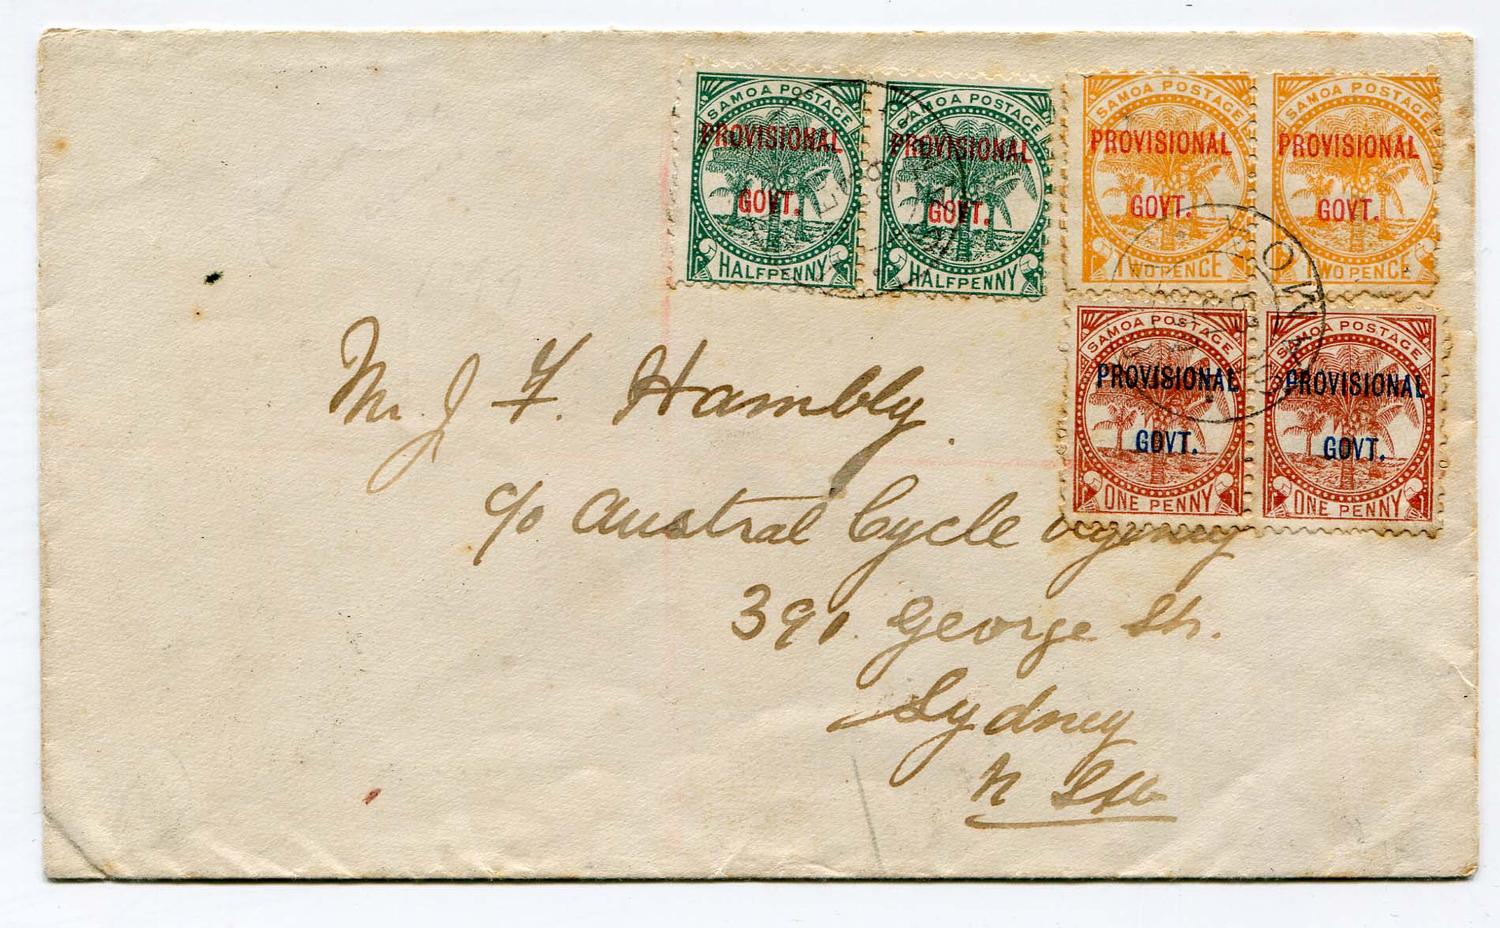 SAMOA POSTAGE SAMOA POSTAGE SAMOA POSTAGE SAMOA POSTAGE
PROVISIONAL PROVISIONAL PROVISIONAL PROVISIONAL
GOVT. GOVT. GOVT. GOVT.
HALFPENNY HALFPENNY TWO PENCE TWO PENCE
SAMOA POSTAGE SAMOA POSTAGE
PROVISIONAL PROVISIONAL
GOVT. GOVT.
ONE PENNY ONE PENNY
Mr. J F. Hambly.
c/o Austral Cycle Agency
391. George St.
Sydney
N SW